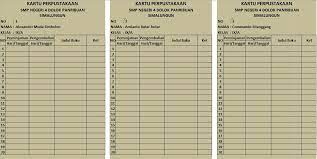 KARTU PERPUSTAKAAN
SMP NEGERI 4 DOLOK PANRIBUAN
SIMALUNGUN
NO : 1
NAMA :
KELAS : IX/A
No Peminjaman Pengembalian Judul Buku Ket
Hari/Tanggal Hari/Tanggal
1
2
3
4
5
6
7
8
9
10
KARTU PERPUSTAKAAN
SMP NEGERI 4 DOLOK PANRIBUAN
SIMALUNGUN
NO : 2
NAMA :
KELAS : IX/A
No Peminjaman Pengembalian Judul Buku Ket
Hari/Tanggal Hari/Tanggal
1
2
3
4
5
6
7
8
9
10
KARTU PERPUSTAKAAN
SMP NEGERI 4 DOLOK PANRIBUAN
SIMALUNGUN
NO : 3
NAMA :
KELAS : IX/A
No Peminjaman Pengembalian Judul Buku Ket
Hari/Tanggal Hari/Tanggal
1
2
3
4
5
6
7
8
9
10